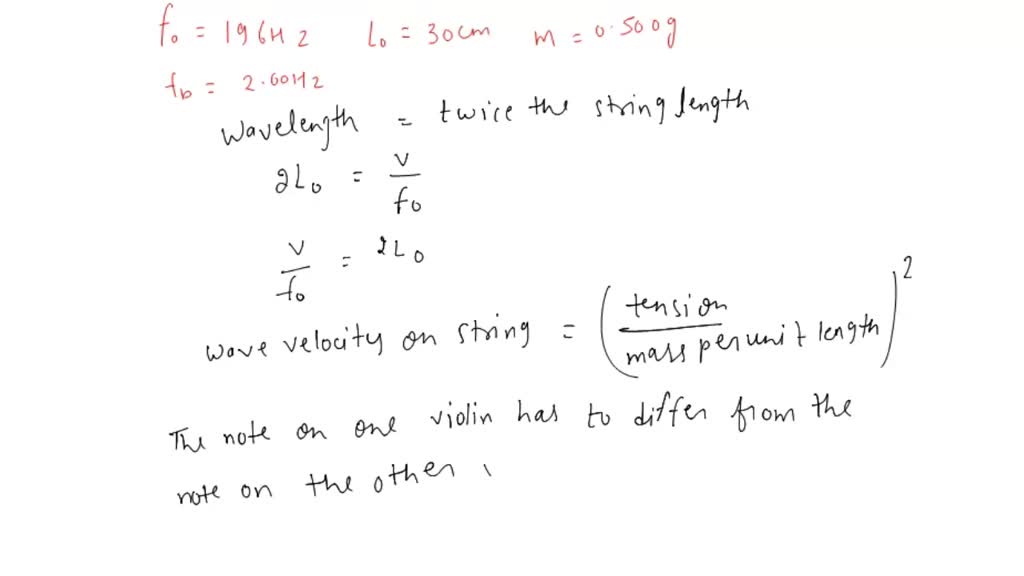 f₀ = 196Hz L₀ = 30cm m = 0.500g
f_b = 2.00Hz
wavelength = twice the string length
2L₀ = v/f₀
v/f₀ = 2L₀
wave velocity on string = (tension/mass per unit length)²
The note on one violin has to differ from the
note on the other